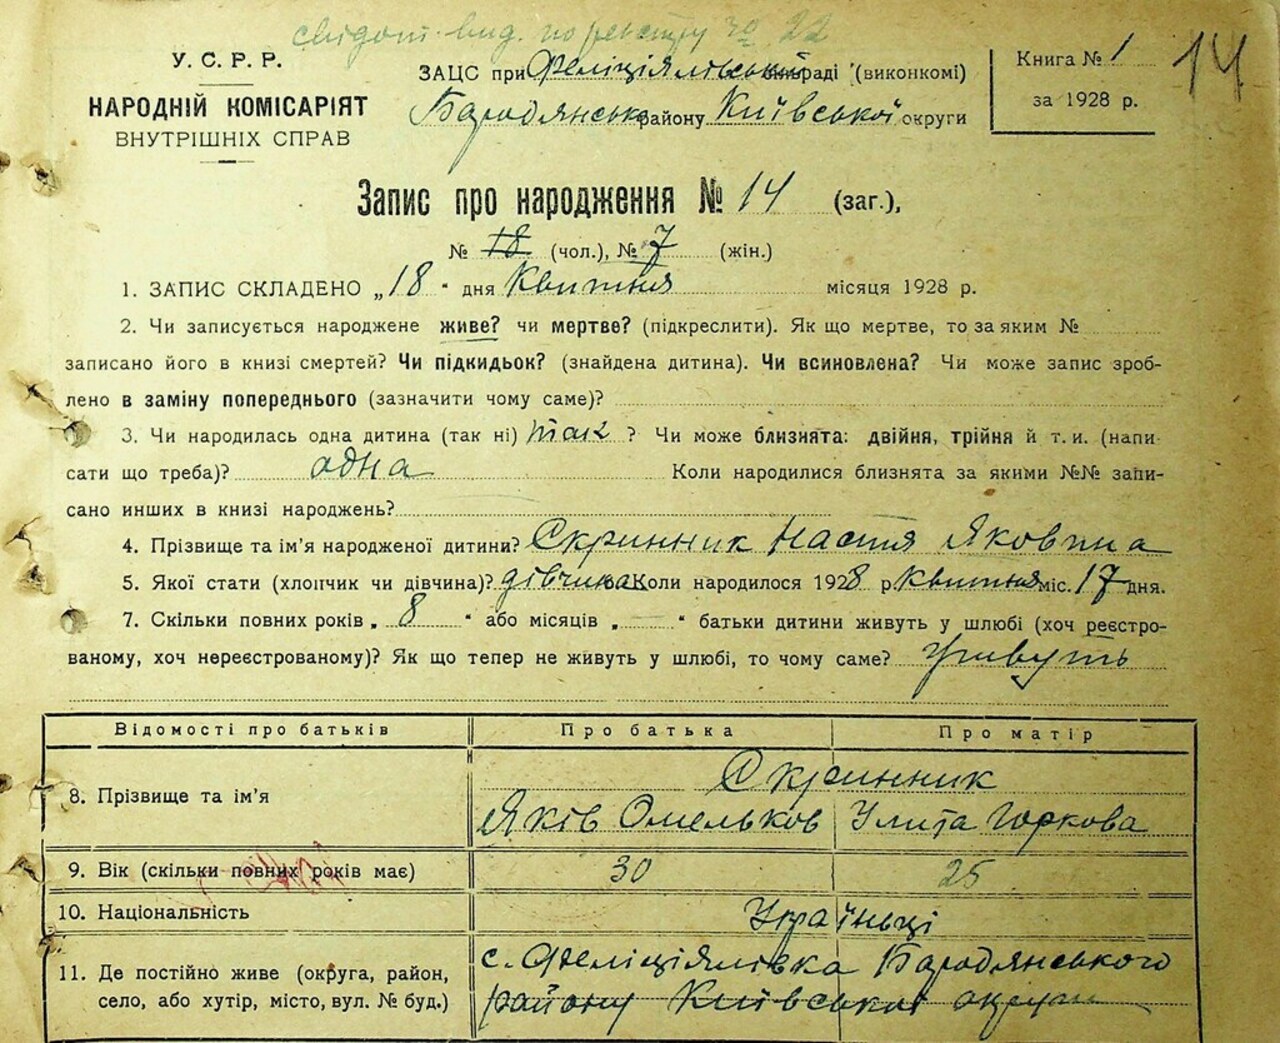 свідот. вид. по реєстру № 22
У. С. Р. Р.
НАРОДНІЙ КОМІСАРІЯТ
ВНУТРІШНІХ СПРАВ
ЗАЦС при Феліціялівській раді (виконкомі)
Бародянськ району Київської округи
Книга № 1
за 1928 р.
14
Запис про народження № 14 (заг.),
№ 18 (чол.), № 7 (жін.)
1. ЗАПИС СКЛАДЕНО „18" дня Квітня місяця 1928 р.
2. Чи записується народжене живе? чи мертве? (підкреслити). Як що мертве, то за яким №
записано його в книзі смертей? Чи підкидьок? (знайдена дитина). Чи всиновлена? Чи може запис зроб-
лено в заміну попереднього (зазначити чому саме)?
3. Чи народилась одна дитина (так ні) так ? Чи може близнята: двійня, трійня й т. и. (напи-
сати що треба)? одна Коли народилися близнята за якими №№ запи-
сано инших в книзі народжень?
4. Прізвище та ім'я народженої дитини? Скринник Настя Яковина
5. Якої стати (хлопчик чи дівчина)? дівчина Коли народилося 1928 р. Квітня міс. 17 дня.
7. Скільки повних років „ 8 " або місяців „ — " батьки дитини живуть у шлюбі (хоч реєстро-
ваному, хоч нереєстрованому)? Як що тепер не живуть у шлюбі, то чому саме?
Відомості про батьків Про батька Про матір
8. Прізвище та ім'я Скринник
Яків Омельков Улита Горкова
9. Вік (скільки повних років має) 30 25
10. Національність Україньці
11. Де постійно живе (округа, район, с. Феліціялівка Бародянського
село, або хутір, місто, вул. № буд.) району Київської округи